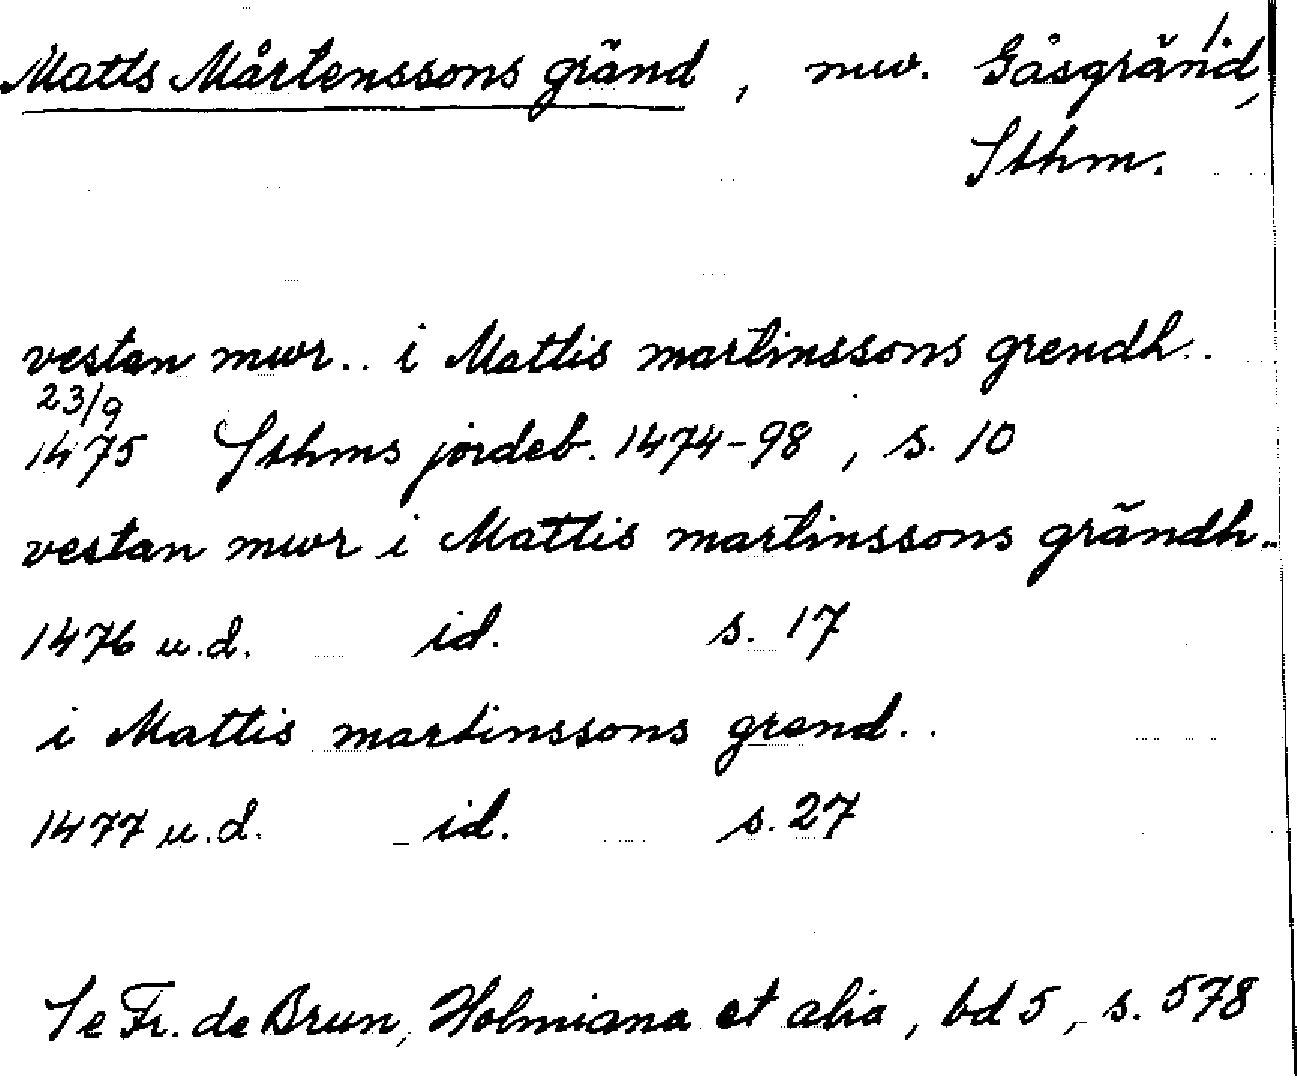 1.
Matts Mårtenssons gränd, nuv. Gåsgränd,
Sthm.
vestan mwr.. i Mattis martinssons grendh..
23/9
1475 Sthms jordeb. 1474-98, s. 10
vestan mwr i Mattis martinssons grändh..
1476 u.d. id. s. 17
i Mattis martinssons grend..
1477 u.d. id. s. 27
Se Fr. de Brun, Holmiana et alia, bd 5, s. 578